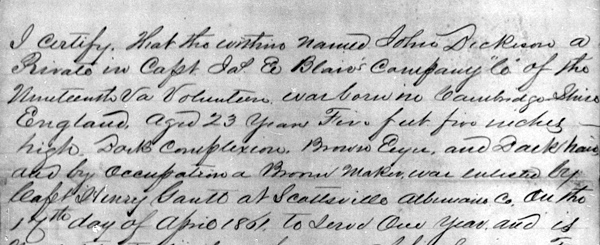 I certify, that the within named John Dickison a
Private in Capt Jas E Blair's Company "C" of the
Nineteenth Va Volunteers was born in Cambridge Shire
England, Aged 23 Years Five feet five inches
high, Dark Complexion, Brown Eyes, and Dark hair
and by occupation a Broom Maker, was enlisted by
Capt Henry Gantt at Scottsville Albemarle Co, on the
day of April 1861, to serve One Year, and is